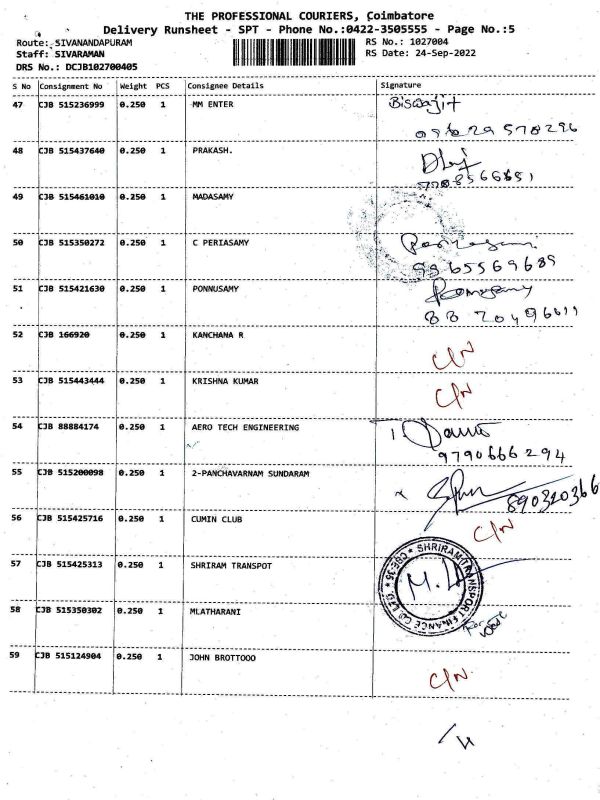 THE PROFESSIONAL COURIERS, Coimbatore
Delivery Runsheet - SPT - Phone No.:0422-3505555 - Page No.:5
Route: SIVANANDAPURAM RS No.: 1027004
Staff: SIVARAMAN RS Date: 24-Sep-2022
DRS No.: DCJB102700405
S No Consignment No Weight PCS Consignee Details Signature
47 CJB 515236999 0.250 1 MM ENTER Biswajit
09629578296
48 CJB 515437640 0.250 1 PRAKASH.
7708566651
49 CJB 515461010 0.250 1 MADASAMY
50 CJB 515350272 0.250 1 C PERIASAMY
9965569689
51 CJB 515421630 0.250 1 PONNUSAMY
88 70496611
52 CJB 166920 0.250 1 KANCHANA R C/N
53 CJB 515443444 0.250 1 KRISHNA KUMAR C/N
54 CJB 88884174 0.250 1 AERO TECH ENGINEERING
9790666294
55 CJB 515200098 0.250 1 2-PANCHAVARNAM SUNDARAM
890320366
56 CJB 515425716 0.250 1 CUMIN CLUB C/N
57 CJB 515425313 0.250 1 SHRIRAM TRANSPOT
SHRIRAM TRANSPORT FINANCE CO LTD * CBE-35 *
58 CJB 515350302 0.250 1 MLATHARANI
59 CJB 515124904 0.250 1 JOHN BROTTOOO C/N